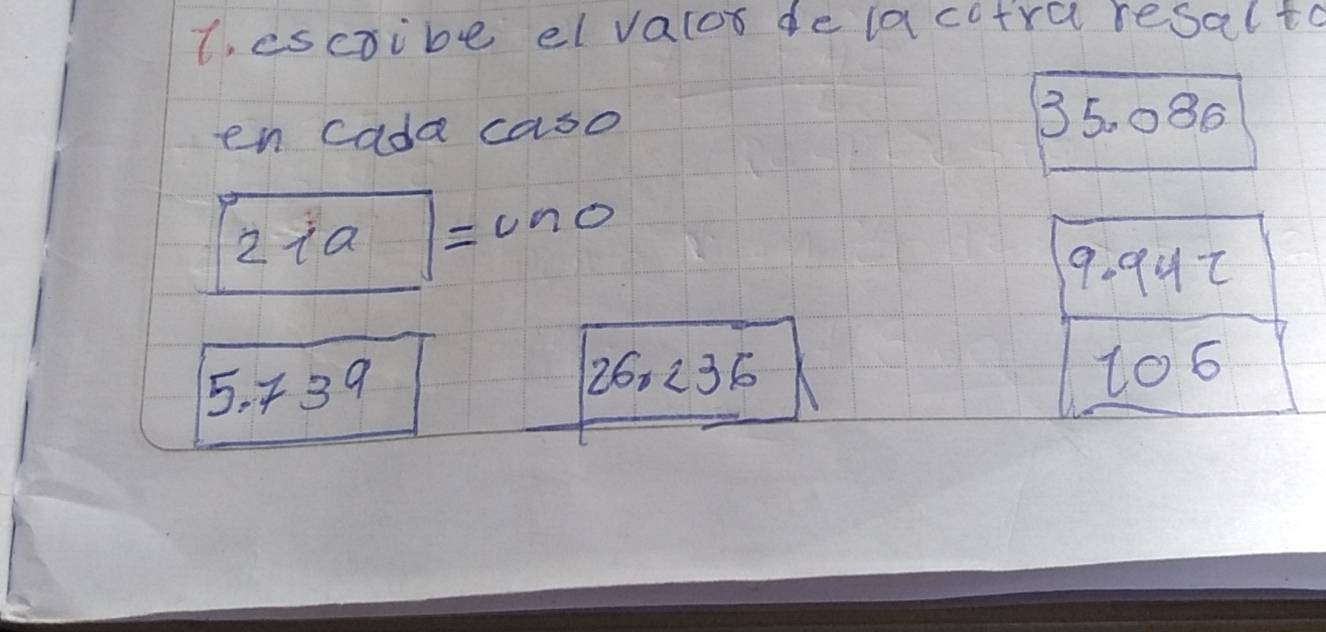 1. escribe el valor de la cifra resalto
en cada caso
35.086
21a = uno
9.941
5.739
26.236
106